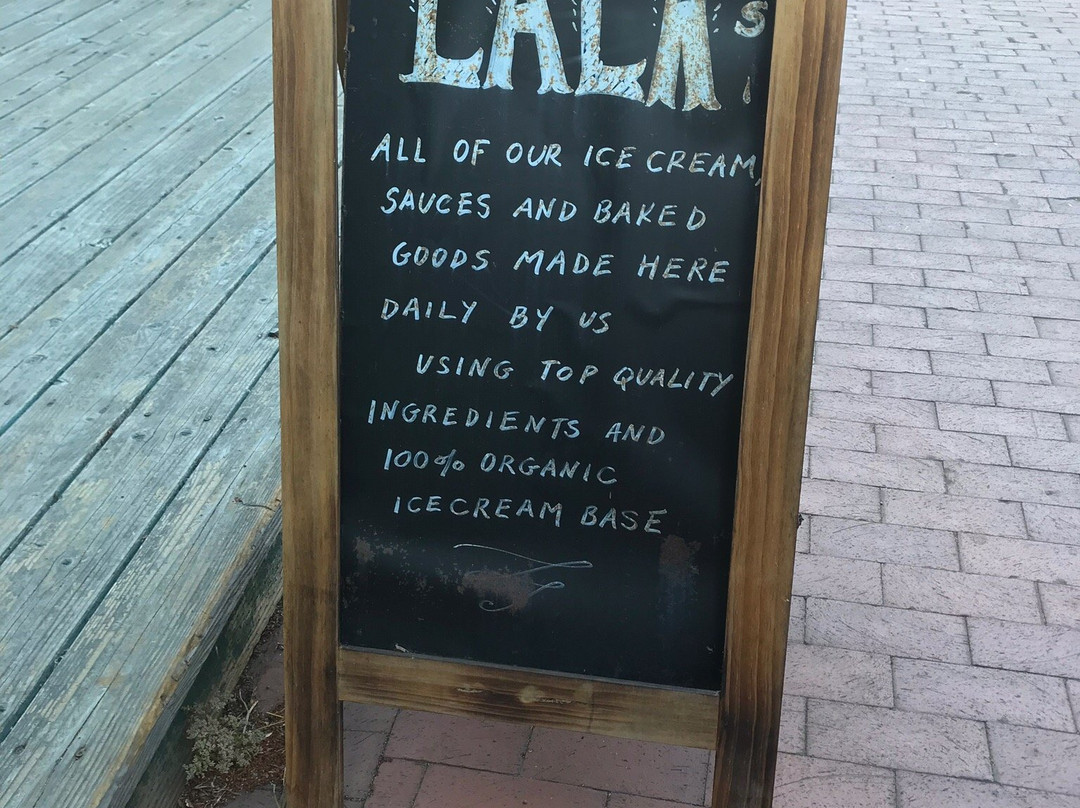 LALA's
ALL OF OUR ICE CREAM,
SAUCES AND BAKED
GOODS MADE HERE
DAILY BY US
USING TOP QUALITY
INGREDIENTS AND
100% ORGANIC
ICECREAM BASE